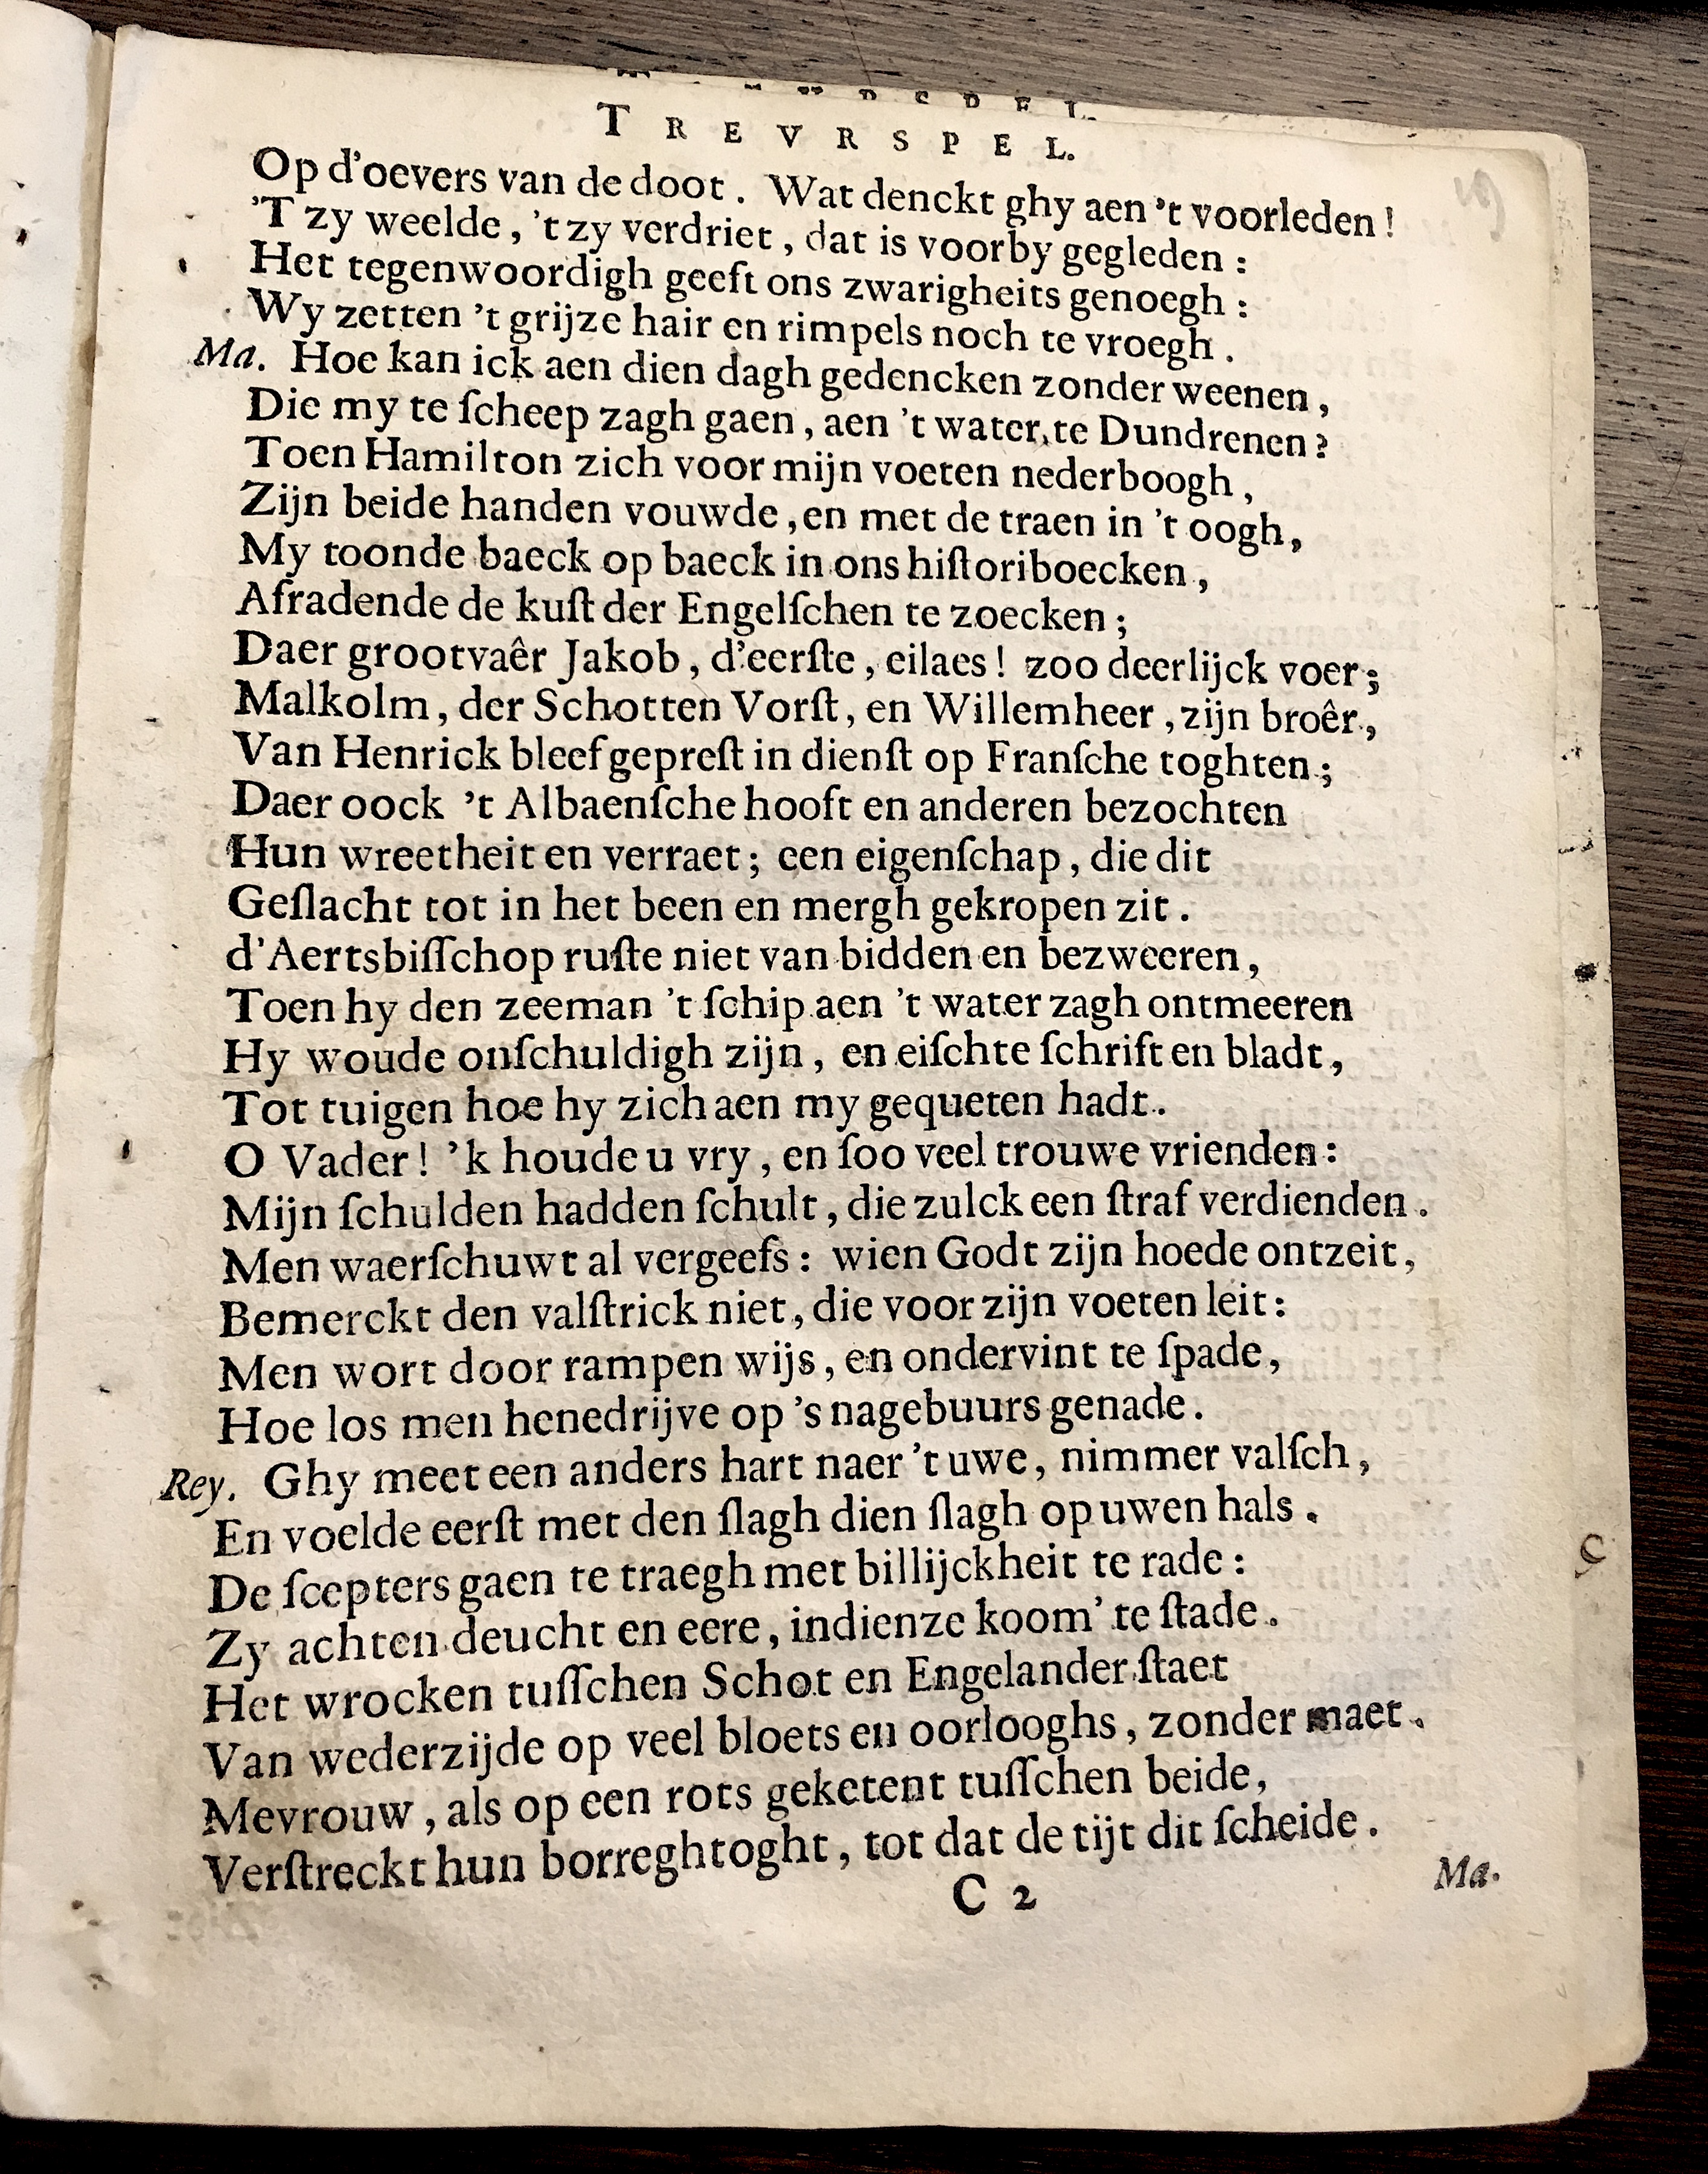 TREVRSPEL.
Op d'oevers van de doot. Wat denckt ghy aen 't voorleden!
'T zy weelde, 't zy verdriet, dat is voorby gegleden:
Het tegenwoordigh geeft ons zwarigheits genoegh:
Wy zetten 't grijze hair en rimpels noch te vroegh.
Ma. Hoe kan ick aen dien dagh gedencken zonder weenen,
Die my te ſcheep zagh gaen, aen 't water, te Dundrenen?
Toen Hamilton zich voor mijn voeten nederboogh,
Zijn beide handen vouwde, en met de traen in 't oogh,
My toonde baeck op baeck in ons hiſtoriboecken,
Afradende de kuſt der Engelſchen te zoecken;
Daer grootvaêr Jakob, d'eerſte, eilaes! zoo deerlijck voer;
Malkolm, der Schotten Vorſt, en Willemheer, zijn broêr,
Van Henrick bleef gepreſt in dienſt op Franſche toghten;
Daer oock 't Albaenſche hooft en anderen bezochten
Hun wreetheit en verraet; een eigenſchap, die dit
Geſlacht tot in het been en mergh gekropen zit.
d'Aertsbiſſchop ruſte niet van bidden en bezweeren,
Toen hy den zeeman 't ſchip aen 't water zagh ontmeeren
Hy woude onſchuldigh zijn, en eiſchte ſchrift en bladt,
Tot tuigen hoe hy zich aen my gequeten hadt.
O Vader! 'k houde u vry, en ſoo veel trouwe vrienden:
Mijn ſchulden hadden ſchult, die zulck een ſtraf verdienden.
Men waerſchuwt al vergeefs: wien Godt zijn hoede ontzeit,
Bemerckt den valſtrick niet, die voor zijn voeten leit:
Men wort door rampen wijs, en ondervint te ſpade,
Hoe los men henedrijve op 's nagebuurs genade.
Rey. Ghy meet een anders hart naer 't uwe, nimmer valſch,
En voelde eerſt met den ſlagh dien ſlagh op uwen hals.
De ſcepters gaen te traegh met billijckheit te rade:
Zy achten deucht en eere, indienze koom' te ſtade.
Het wrocken tuſſchen Schot en Engelander ſtaet
Van wederzijde op veel bloets en oorlooghs, zonder maet.
Mevrouw, als op een rots geketent tuſſchen beide,
Verſtreckt hun borreghtoght, tot dat de tijt dit ſcheide.
C 2
Ma.